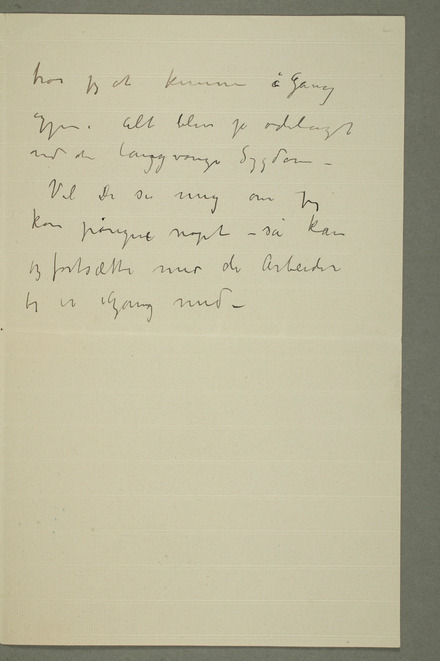 tror jeg at kunne i Gang
igjen. Alt blev jo ødelagt
ved den langvarige Sygdom –
Vil De se mig om jeg
kan noget – så kan
jeg fortsætte med de Arbeider
jeg er igang med –